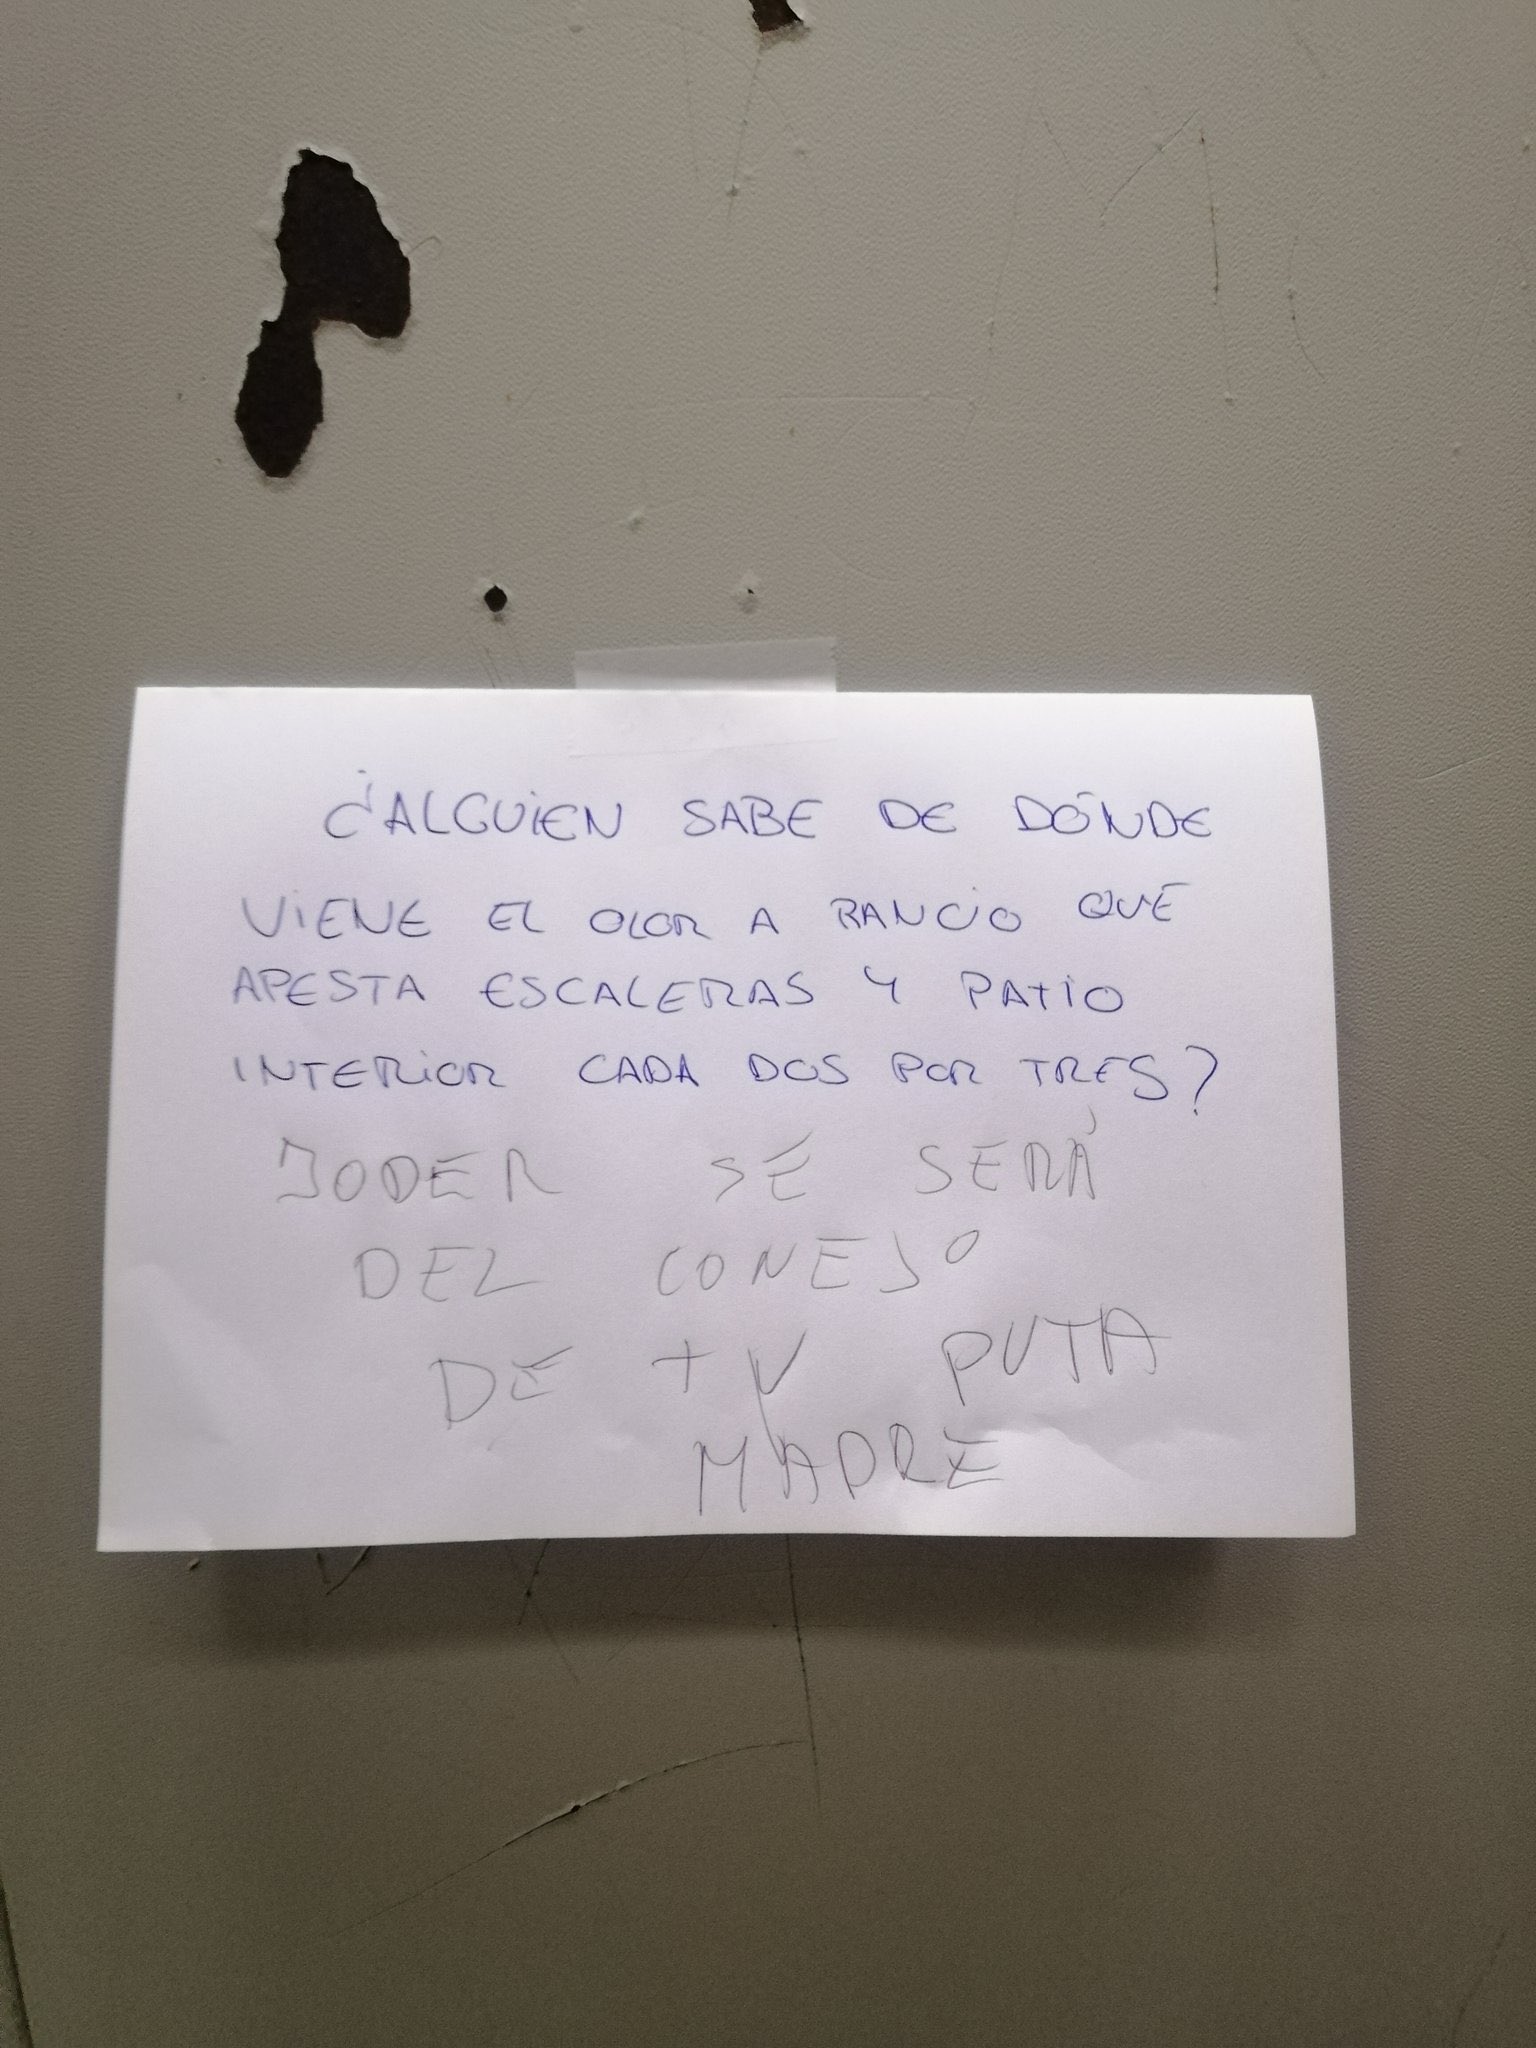 ¿ALGUIEN SABE DE DÓNDE
VIENE EL OLOR A RANCIO QUE
APESTA ESCALERAS Y PATIO
INTERIOR CADA DOS POR TRES?
JODER SE SERÁ
DEL CONEJO
DE TU PUTA
MADRE